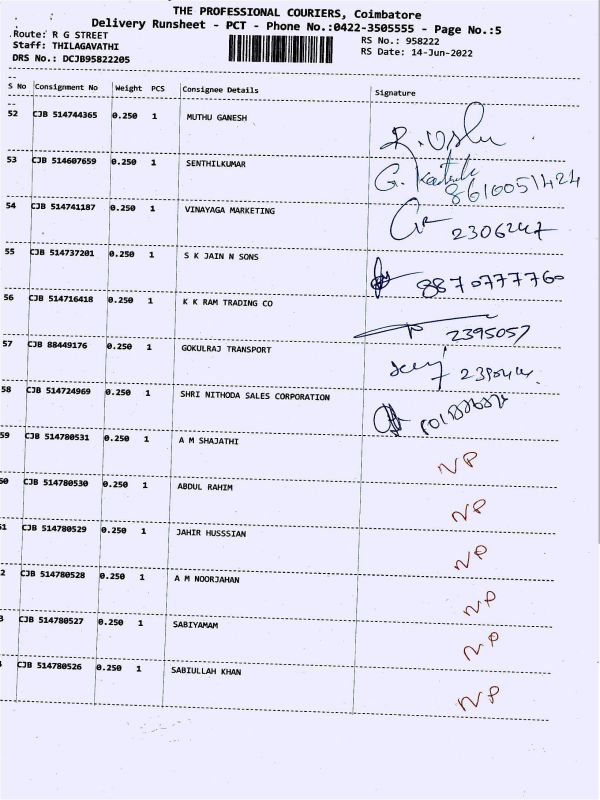 THE PROFESSIONAL COURIERS, Coimbatore
Delivery Runsheet - PCT - Phone No.:0422-3505555 - Page No.:5
Route: R G STREET
RS No.: 958222
Staff: THILAGAVATHI
RS Date: 14-Jun-2022
DRS No.: DCJB95822205
S No Consignment No Weight PCS Consignee Details Signature
52 CJB 514744365 0.250 1 MUTHU GANESH
53 CJB 514607659 0.250 1 SENTHILKUMAR G. 8610051424
54 CJB 514741187 0.250 1 VINAYAGA MARKETING 2306247
55 CJB 514737201 0.250 1 S K JAIN N SONS 8870777760
56 CJB 514716418 0.250 1 K K RAM TRADING CO 2395057
57 CJB 88449176 0.250 1 GOKULRAJ TRANSPORT
58 CJB 514724969 0.250 1 SHRI NITHODA SALES CORPORATION
59 CJB 514780531 0.250 1 A M SHAJATHI NP
60 CJB 514780530 0.250 1 ABDUL RAHIM NP
51 CJB 514780529 0.250 1 JAHIR HUSSSIAN NP
2 CJB 514780528 0.250 1 A M NOORJAHAN NP
3 CJB 514780527 0.250 1 SABIYAMAM NP
CJB 514780526 0.250 1 SABIULLAH KHAN NP